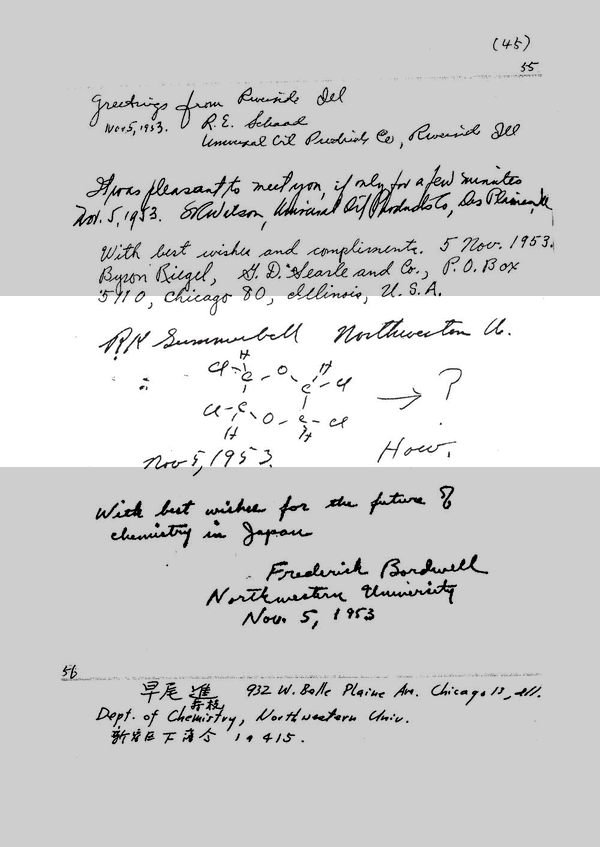 (45)
55
Greetings from Riverside Ill
Nov 5, 1953. R. E. Schaad
Universal Oil Products Co, Riverside Ill
It was pleasant to meet you, if only for a few minutes
Nov. 5, 1953. Wilson, Universal Oil Products Co, Des Plaines, Ill
With best wishes and compliments. 5 Nov. 1953.
Byron Riegel, G. D. Searle and Co., P. O. Box
5110, Chicago 80, Illinois, U. S. A.
R. K. Summerbell Northwestern U.
H
Cl - C - O - C - H
Cl
Cl - C - O - C - Cl
H H
→ ?
How.
Nov 5, 1953.
With best wishes for the future of
chemistry in Japan
Frederick Bordwell
Northwestern University
Nov. 5, 1953
56
早尾 進 932 W. Belle Plaine Ave. Chicago 13, Ill.
Dept. of Chemistry, Northwestern Univ.
新宿区下落合 1の415.